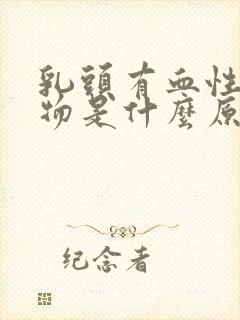 乳頭有血性
物是什麼原
纪念者